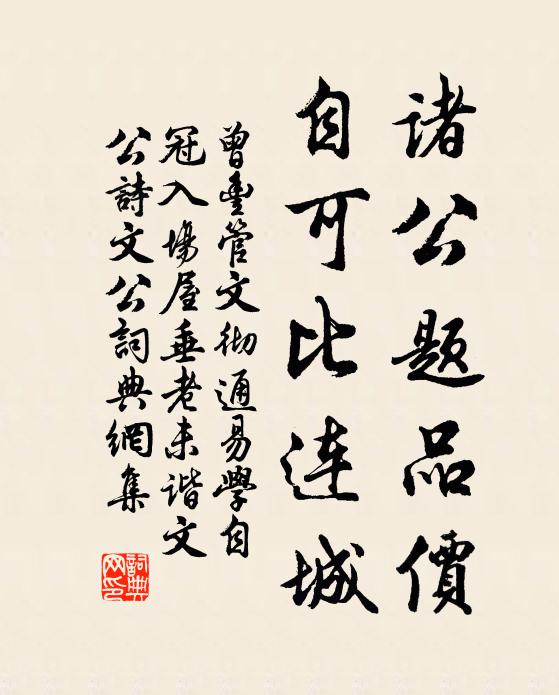 諸公題品價
自可比連城
曾豊管文彻通易學自
冠入場屋垂老未谐文
公詩文公詞典網集
詞典网印